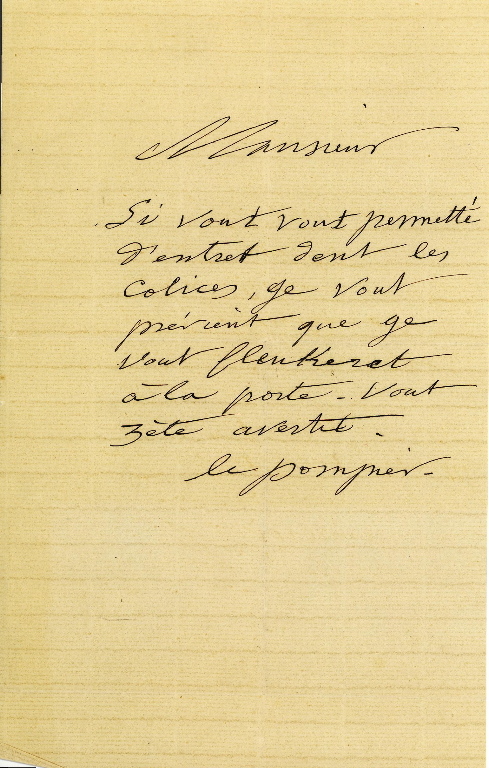 Mansieur
Si vout vout permetté
d'entret dent les
Colices, ge vout
prévient que ge
vout flenkeret
à la porte - Vout
zète avertit.
le pompier -